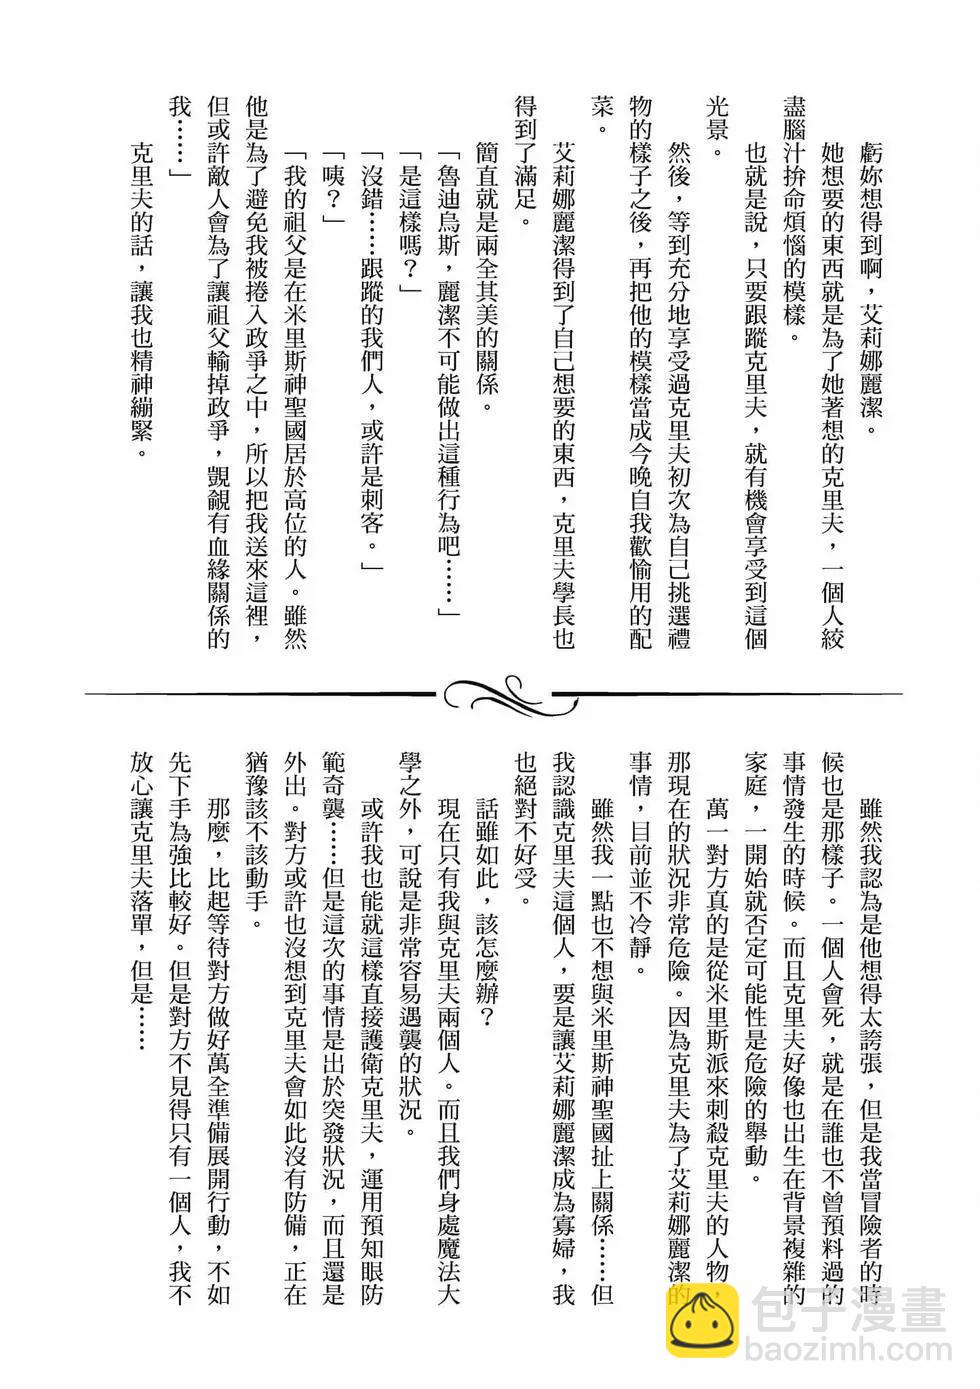 虧妳想得到啊，艾莉娜麗潔。
她想要的東西就是為了她著想的克里夫，一個人絞
盡腦汁拚命煩惱的模樣。
也就是說，只要跟蹤克里夫，就有機會享受到這個
光景。
然後，等到充分地享受過克里夫初次為自己挑選禮
物的樣子之後，再把他的模樣當成今晚自我歡愉用的配
菜。
艾莉娜麗潔得到了自己想要的東西，克里夫學長也
得到了滿足。
簡直就是兩全其美的關係。
「魯迪烏斯，麗潔不可能做出這種行為吧……」
「是這樣嗎？」
「沒錯……跟蹤的我們人，或許是刺客。」
「咦？」
「我的祖父是在米里斯神聖國居於高位的人。雖然
他是為了避免我被捲入政爭之中，所以把我送來這裡，
但或許敵人會為了讓祖父輸掉政爭，覬覦有血緣關係的
我……」
克里夫的話，讓我也精神繃緊。
雖然我認為是他想得太誇張，但是我當冒險者的時
候也是那樣子。一個人會死，就是在誰也不曾預料過的
事情發生的時候。而且克里夫好像也出生在背景複雜的
家庭，一開始就否定可能性是危險的舉動。
萬一對方真的是從米里斯派來刺殺克里夫的人物，
那現在的狀況非常危險。因為克里夫為了艾莉娜麗潔的
事情，目前並不冷靜。
雖然我一點也不想與米里斯神聖國扯上關係……但
我認識克里夫這個人，要是讓艾莉娜麗潔成為寡婦，我
也絕對不好受。
話雖如此，該怎麼辦？
現在只有我與克里夫兩個人。而且我們身處魔法大
學之外，可說是非常容易遇襲的狀況。
或許我也能就這樣直接護衛克里夫，運用預知眼防
範奇襲……但是這次的事情是出於突發狀況，而且還是
外出。對方或許也沒想到克里夫會如此沒有防備，正在
猶豫該不該動手。
那麼，比起等待對方做好萬全準備展開行動，不如
先下手為強比較好。但是對方不見得只有一個人，我不
放心讓克里夫落單，但是……
包子漫畫
baozimh.com